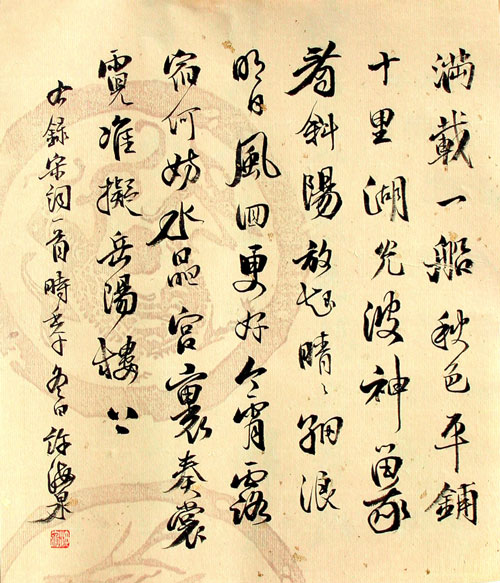 滿載一船秋色平鋪
十里湖光波神留我
看斜陽放起晴〻細浪
明日風回更好今宵露
宿何妨水晶宮裏奏裳
霓准擬岳陽樓上
右錄宋詞一首時冬日許海泉